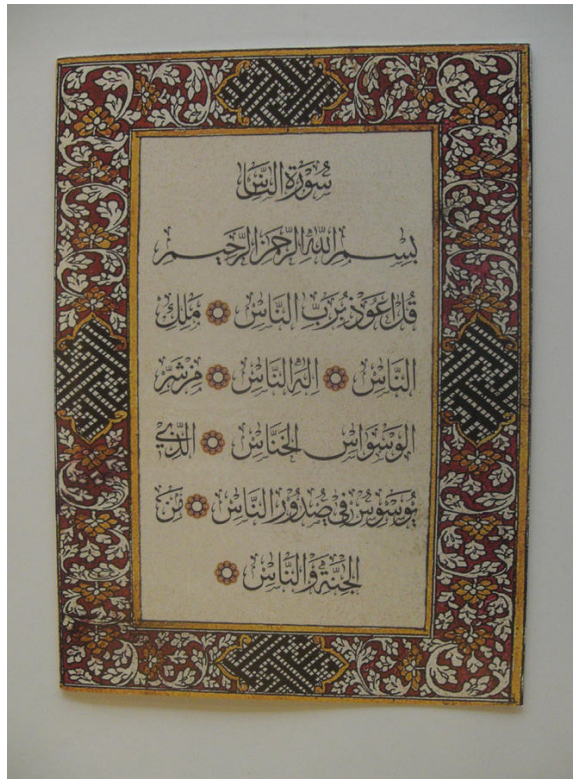 سُورَةُ النَّاسِ
بِسْمِ اللّٰهِ الرَّحْمٰنِ الرَّحِيْمِ
قُلْ اَعُوْذُ بِرَبِّ النَّاسِ ۝ مَلِكِ
النَّاسِ ۝ اِلٰهِ النَّاسِ ۝ مِنْ شَرِّ
الْوَسْوَاسِ الْخَنَّاسِ ۝ الَّذِيْ
يُوَسْوِسُ فِيْ صُدُوْرِ النَّاسِ ۝ مِنَ
الْجِنَّةِ وَالنَّاسِ ۝